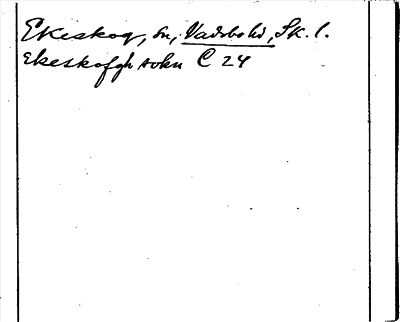 Ekeskog, sn, Vadsbo hd, Sk. l.
Ekeskofgh sokn C 24